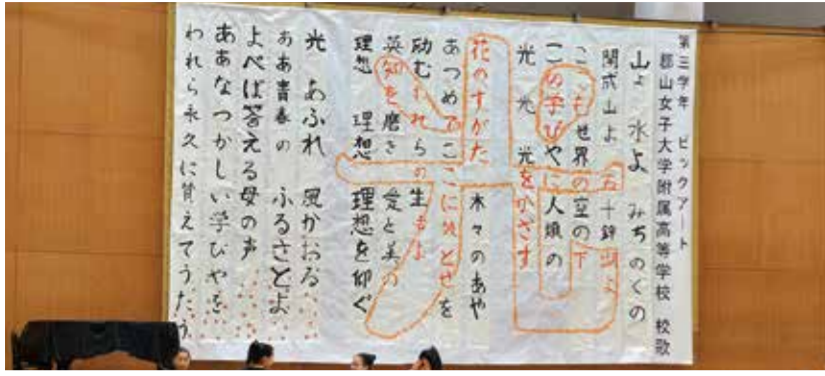 第三学年 ビックアート
郡山女子大学附属高等学校 校歌
山よ 水よ みちのくの
開成山よ 五十鈴湖よ
ここも世界の空の下
この学びやに人類の
光 光 光をかざす
花のすがた 木々のあや
あつめてここに とせを
励むわれらの生命よ
英知を磨き 愛と美の
理想 理想 理想を仰ぐ
光 あふれ 風かおる
ああ青春の ふるさとよ
よべば答える母の声
ああなつかしい学びやを
われら永久に えてうたう